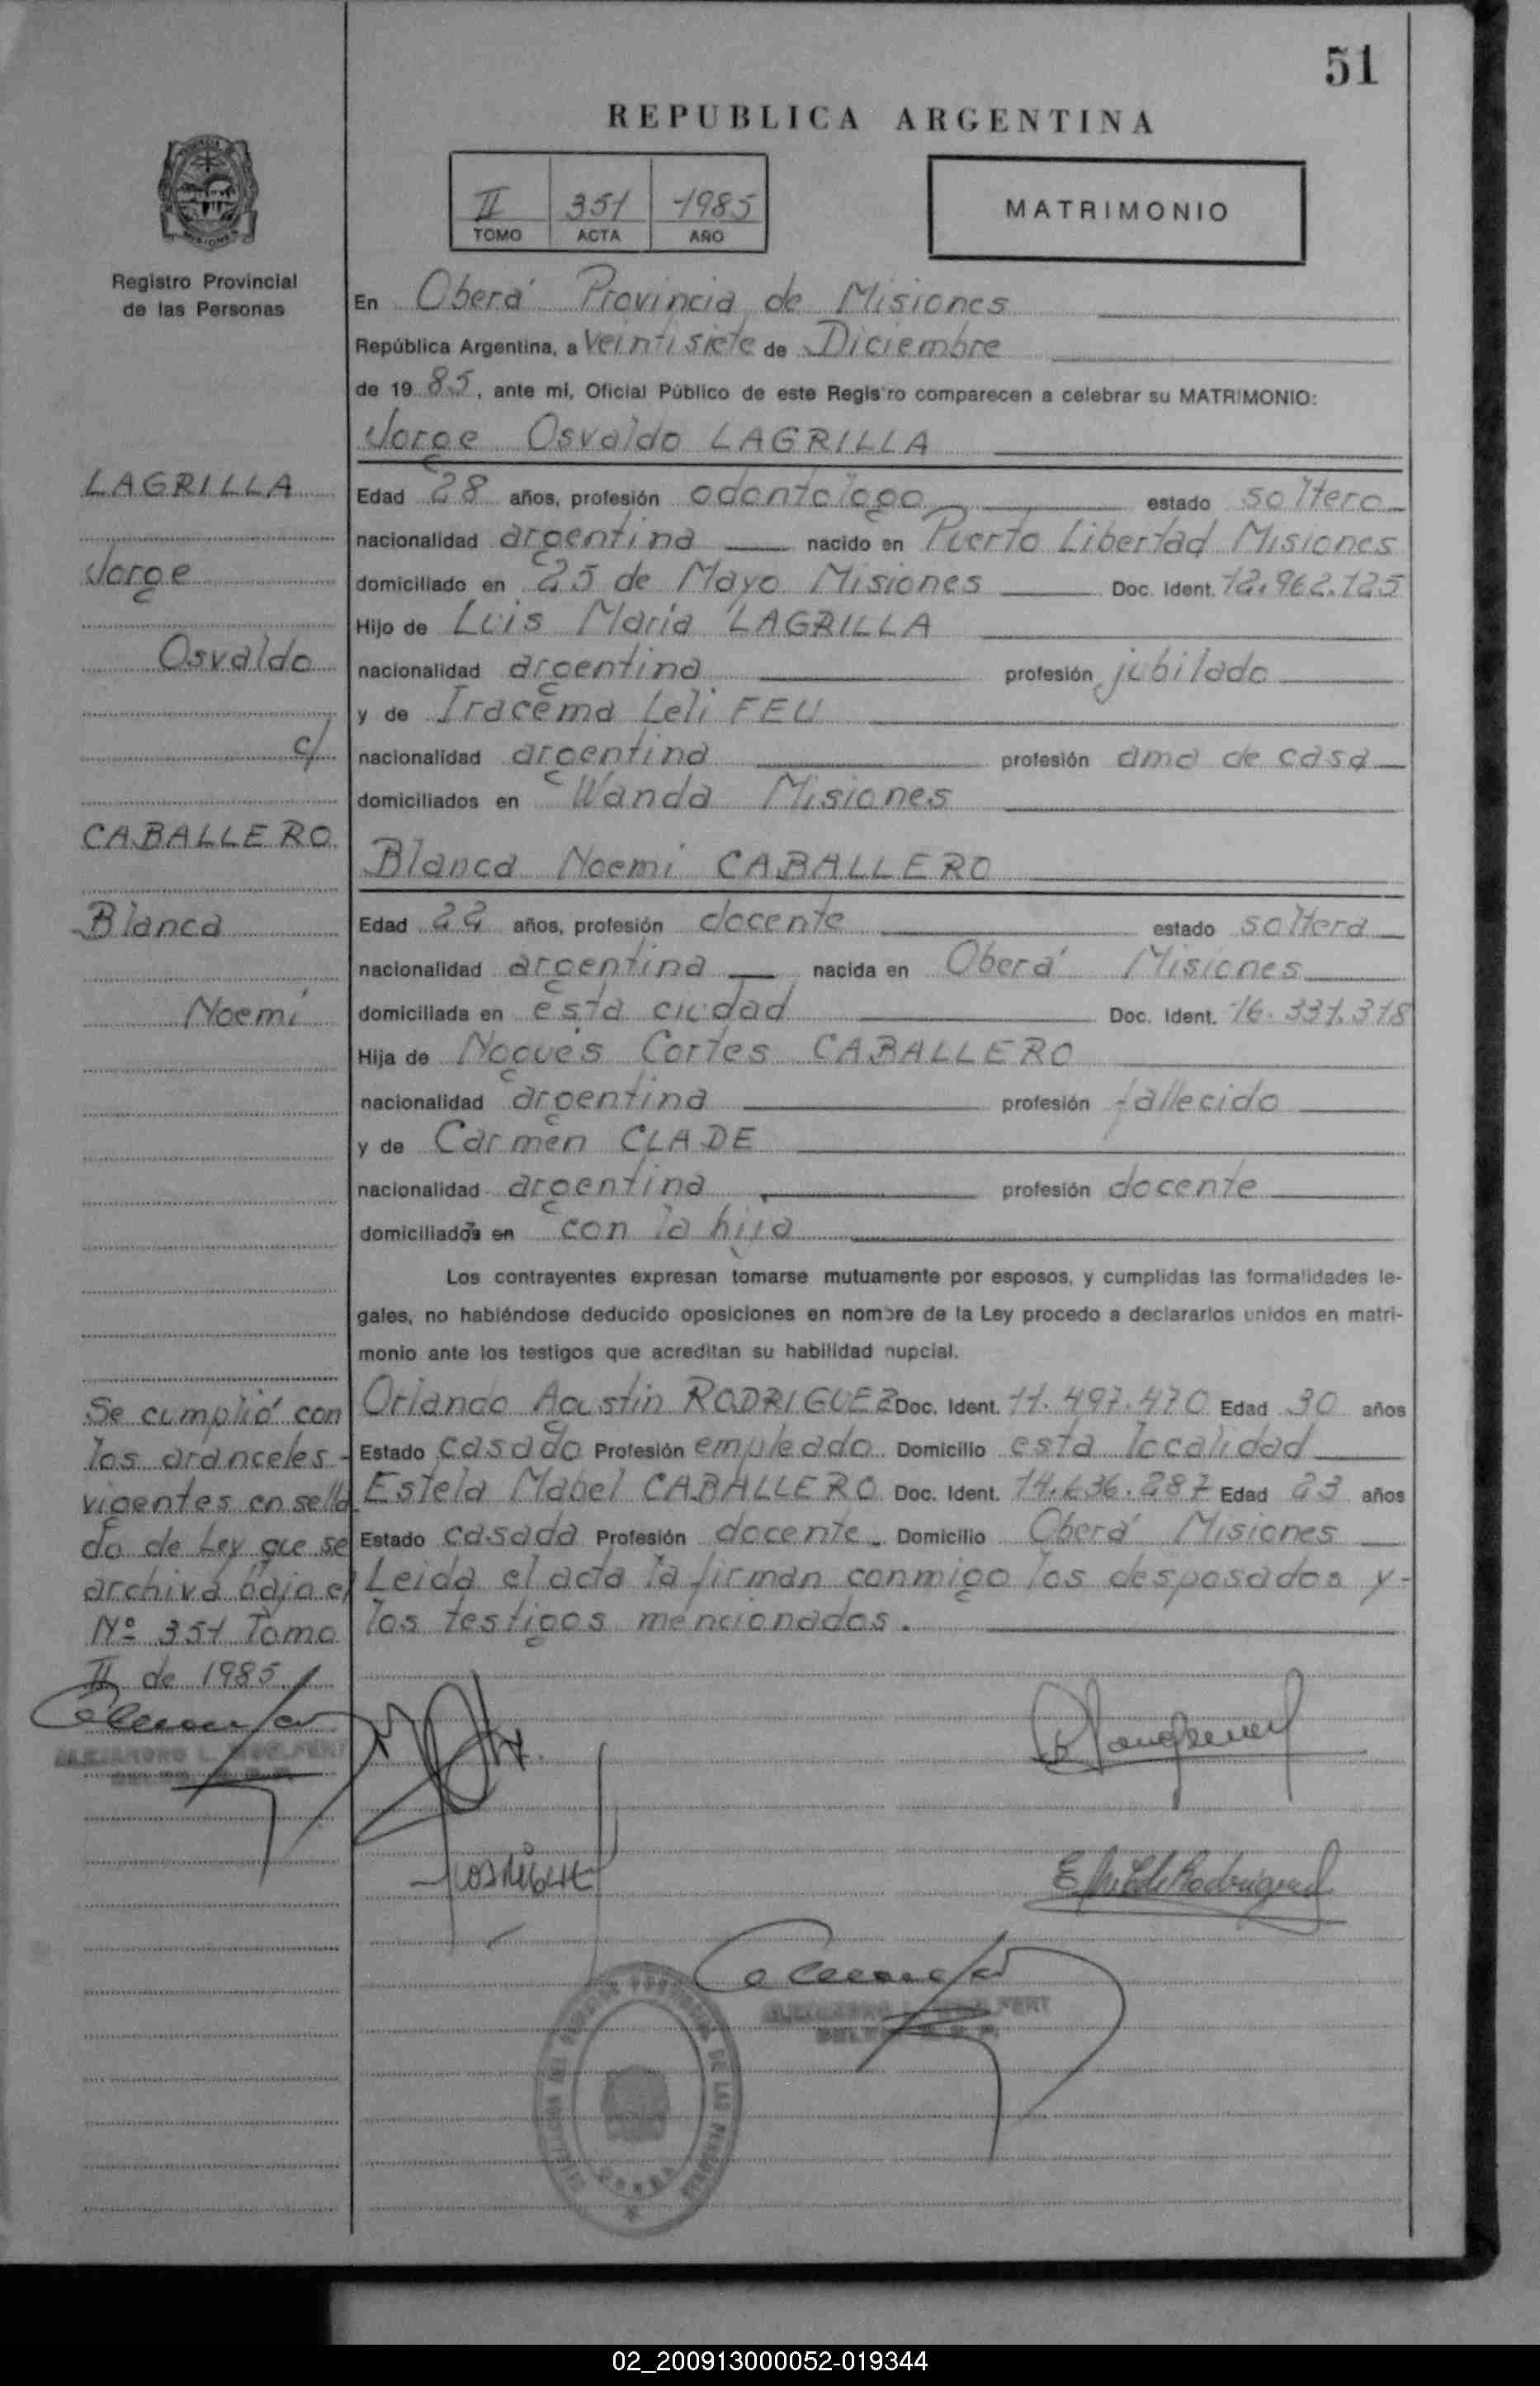 51
REPUBLICA ARGENTINA
II 351 1985
TOMO ACTA AÑO
MATRIMONIO
MISIONES
Registro Provincial
de las Personas
En Oberá Provincia de Misiones
República Argentina, a veintisiete de Diciembre
de 19 85, ante mi, Oficial Público de este Registro comparecen a celebrar su MATRIMONIO:
Jorge Osvaldo LAGRILLA
Edad 28 años, profesión odontologo estado soltero
nacionalidad argentina nacido en Puerto Libertad Misiones
domiciliado en 25 de Mayo Misiones Doc. Ident. 12.962.125
Hijo de Luis Maria LAGRILLA
nacionalidad argentina profesión jubilado
y de Iracema Leli FEU
nacionalidad argentina profesión ama de casa
domiciliados en Wanda Misiones
Blanca Noemi CABALLERO
Edad 22 años, profesión docente estado soltera
nacionalidad argentina nacida en Oberá Misiones
domiciliada en esta ciudad Doc. Ident. 16.331.318
Hija de Nogués Cortes CABALLERO
nacionalidad argentina profesión fallecido
y de Carmen CLADE
nacionalidad argentina profesión docente
domiciliada en con la hija
Los contrayentes expresan tomarse mutuamente por esposos, y cumplidas las formalidades le-
gales, no habiéndose deducido oposiciones en nombre de la Ley procedo a declararlos unidos en matri-
monio ante los testigos que acreditan su habilidad nupcial.
Orlando Agustin RODRIGUEZ Doc. Ident. 11.497.470 Edad 30 años
Estado casado Profesión empleado Domicilio esta localidad
Estela Mabel CABALLERO Doc. Ident. 14.636.287 Edad 23 años
Estado casada Profesión docente Domicilio Oberá Misiones
Leida el acta la firman conmigo los desposados y-
los testigos mencionados.
LAGRILLA
Jorge
Osvaldo
c/
CABALLERO
Blanca
Noemi
Se cumplió con
los aranceles-
vigentes en sella
do de Ley que se
archiva bajo el
Nº 351 Tomo
II de 1985
02_200913000052-019344